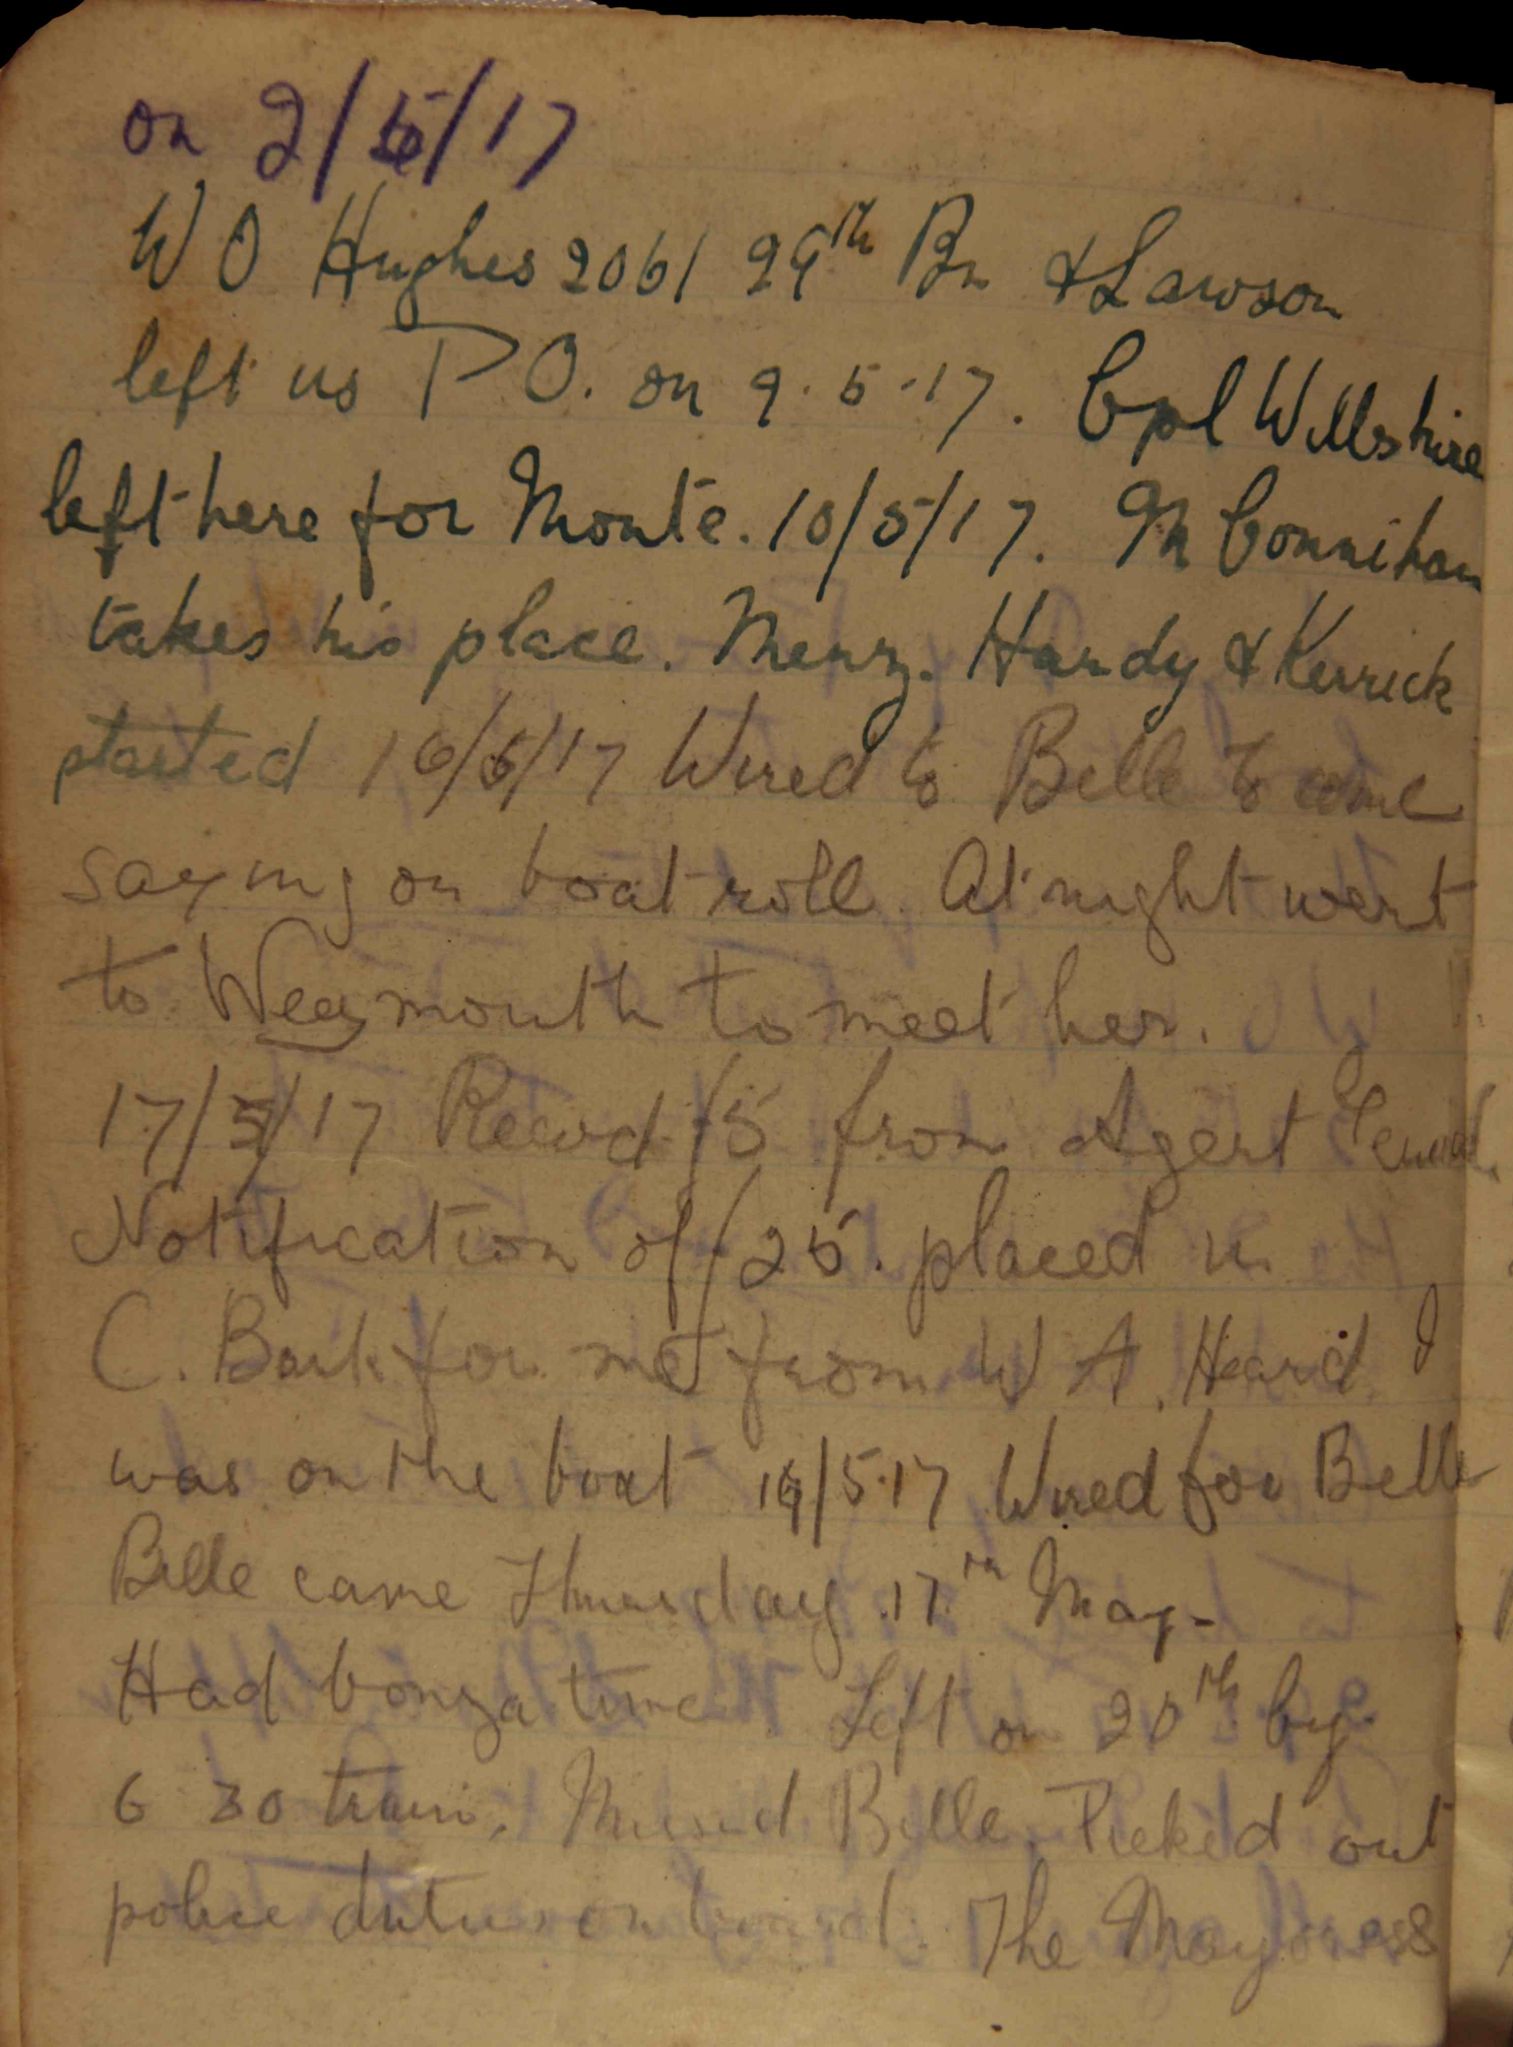 on 2/5/17
W O Hughes 2061 29th Bn & Lawson
left us P O. on 9.5.17. Cpl Willshire
left here for Monte. 10/5/17. M Connihan
takes his place. Menz. Hardy & Kerrick
started 16/5/17 Wired to Belle to come
saying on boat roll. At night went
to Weymouth to meet her.
17/5/17 Recvd £5 from Agent
Notification of £25. placed in
C. Bank for me from W A. Heard I
was on the boat 14/5.17 Wired for Belle
Belle came Thursday 17th May.
Had bonza time. Left on 20th by
6 30 train. Missed Belle. Picked out
police duties on board. The Mayoress